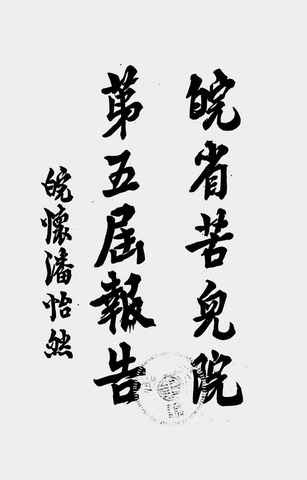 皖省苦兒院
第五屆報告
皖懷潘怡然